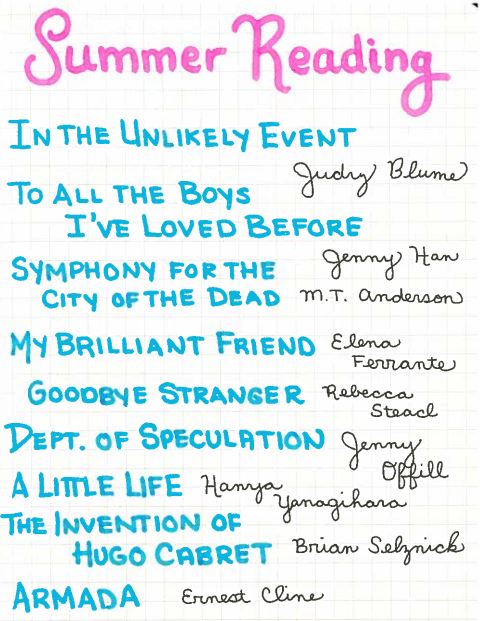 Summer Reading
IN THE UNLIKELY EVENT
Judy Blume
TO ALL THE BOYS
I'VE LOVED BEFORE
Jenny Han
SYMPHONY FOR THE
CITY OF THE DEAD M.T. Anderson
MY BRILLIANT FRIEND Elena
Ferrante
GOODBYE STRANGER Rebecca
Steacl
DEPT. OF SPECULATION Jenny
Offill
A LITTLE LIFE Hanya
Yanagihara
THE INVENTION OF
HUGO CABRET Brian Selznick
ARMADA Ernest Cline